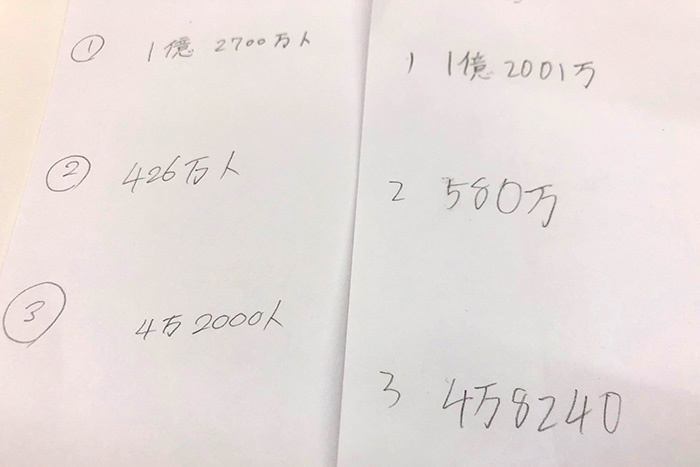 ① 1億 2700万人
② 426万人
③ 4万2000人
1 1億2001万
2 580万
3 4万8240